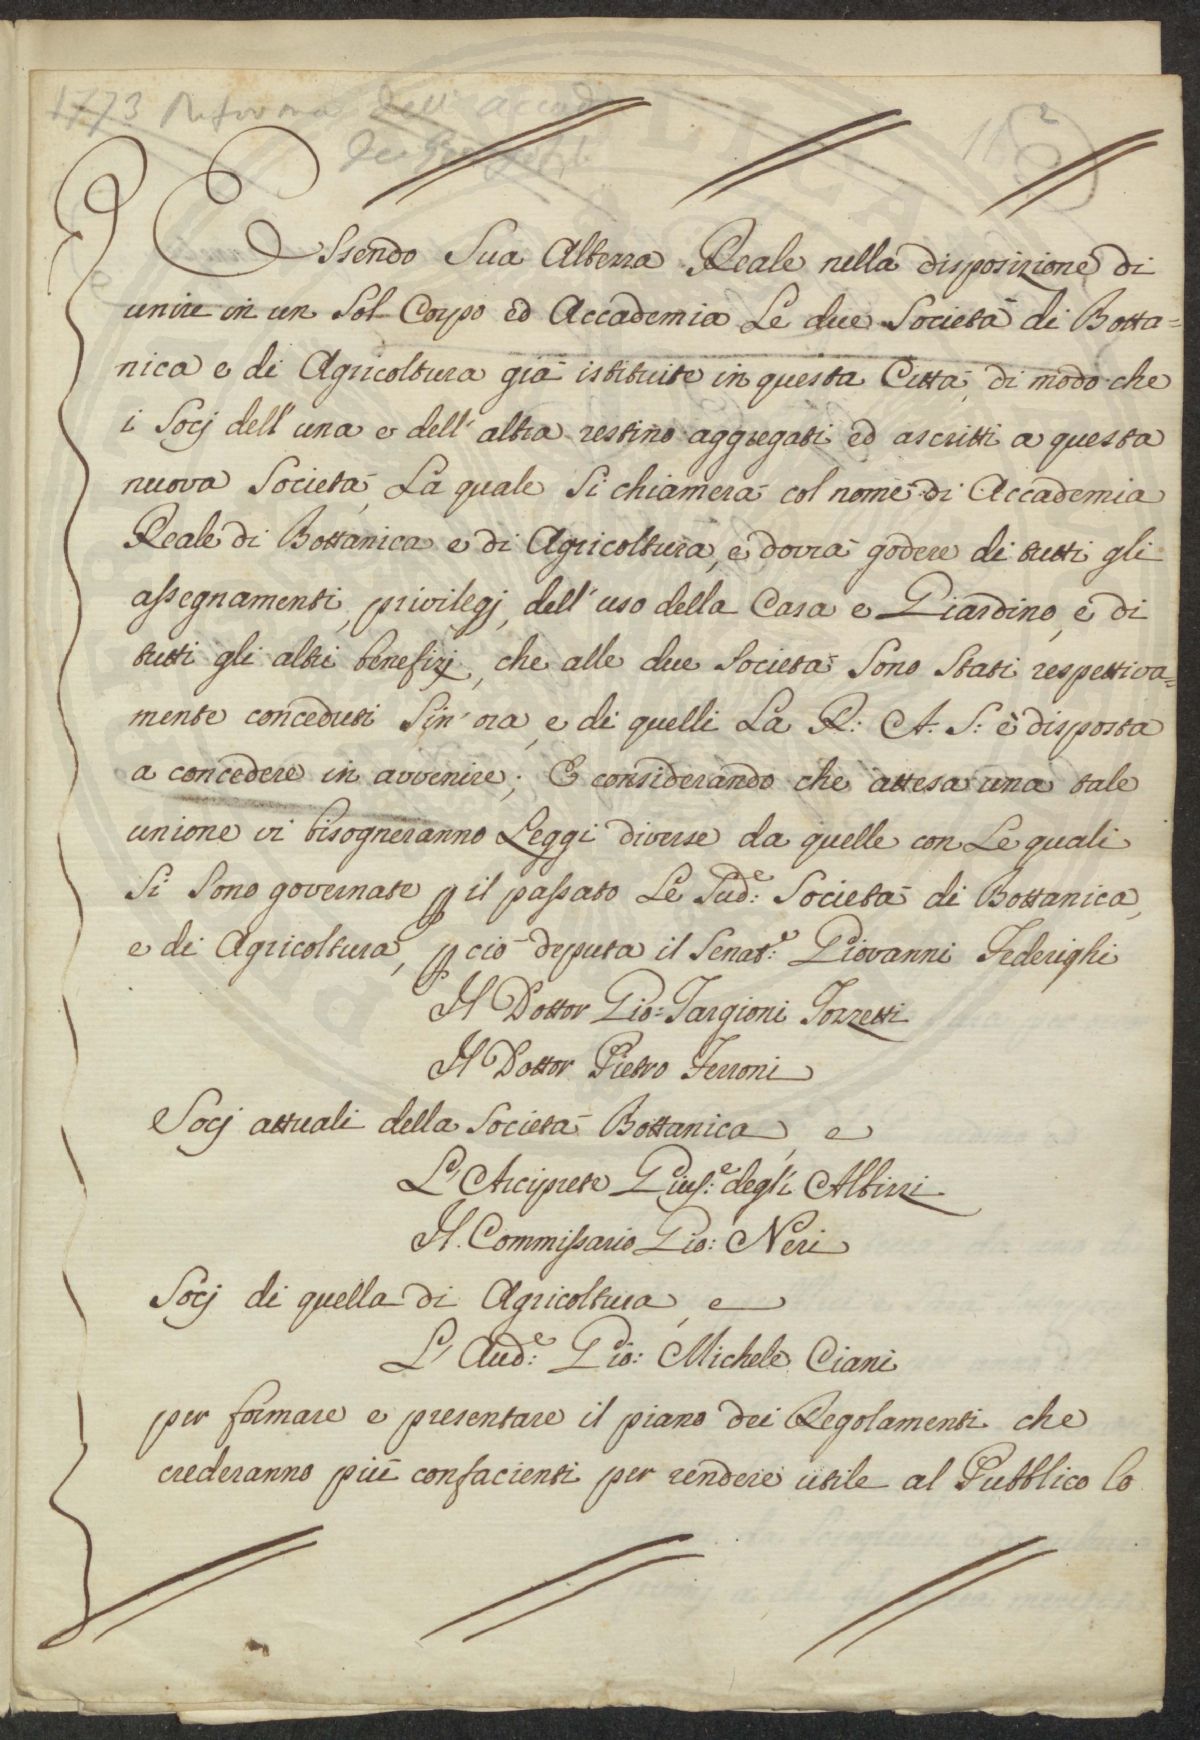 1773 Riforma dell'Accad
dei Georgofili
Essendo Sua Altezza Reale nella disposizione di
unire in un Sol Corpo ed Accademia Le due Società di Botta=
nica e di Agricoltura già istituite in questa Città, di modo che
i Socj dell'una e dell'altra restino aggregati ed ascritti a questa
nuova Società, La quale Si chiamerà col nome di Accademia
Reale di Bottanica e di Agricoltura, e dovrà godere di tutti gli
assegnamenti, privilegj, dell'uso della Casa e Giardino, e di
tutti gli altri benefizj, che alle due Società Sono Stati respettiva=
mente conceduti Sin'ora, e di quelli La R: A: S: è disposta
a concedere in avvenire; E considerando che attesa una tale
unione vi bisogneranno Leggi diverse da quelle con Le quali
Si Sono governate p il passato Le Sud:e Società di Bottanica,
e di Agricoltura, p ciò deputa il Senat:e Giovanni Federighi
Il Dottor Gio: Targioni Tozzetti
Il Dottor Pietro Ferroni
Socj attuali della Società Bottanica, e
L'Arciprete Gius:e degli Albizzi
Il Commissario Gio: Neri
Socj di quella di Agricoltura, e
L'Aud:e Gio: Michele Ciani
per formare e presentare il piano dei Regolamenti che
crederanno più confacienti per rendere utile al Pubblico lo